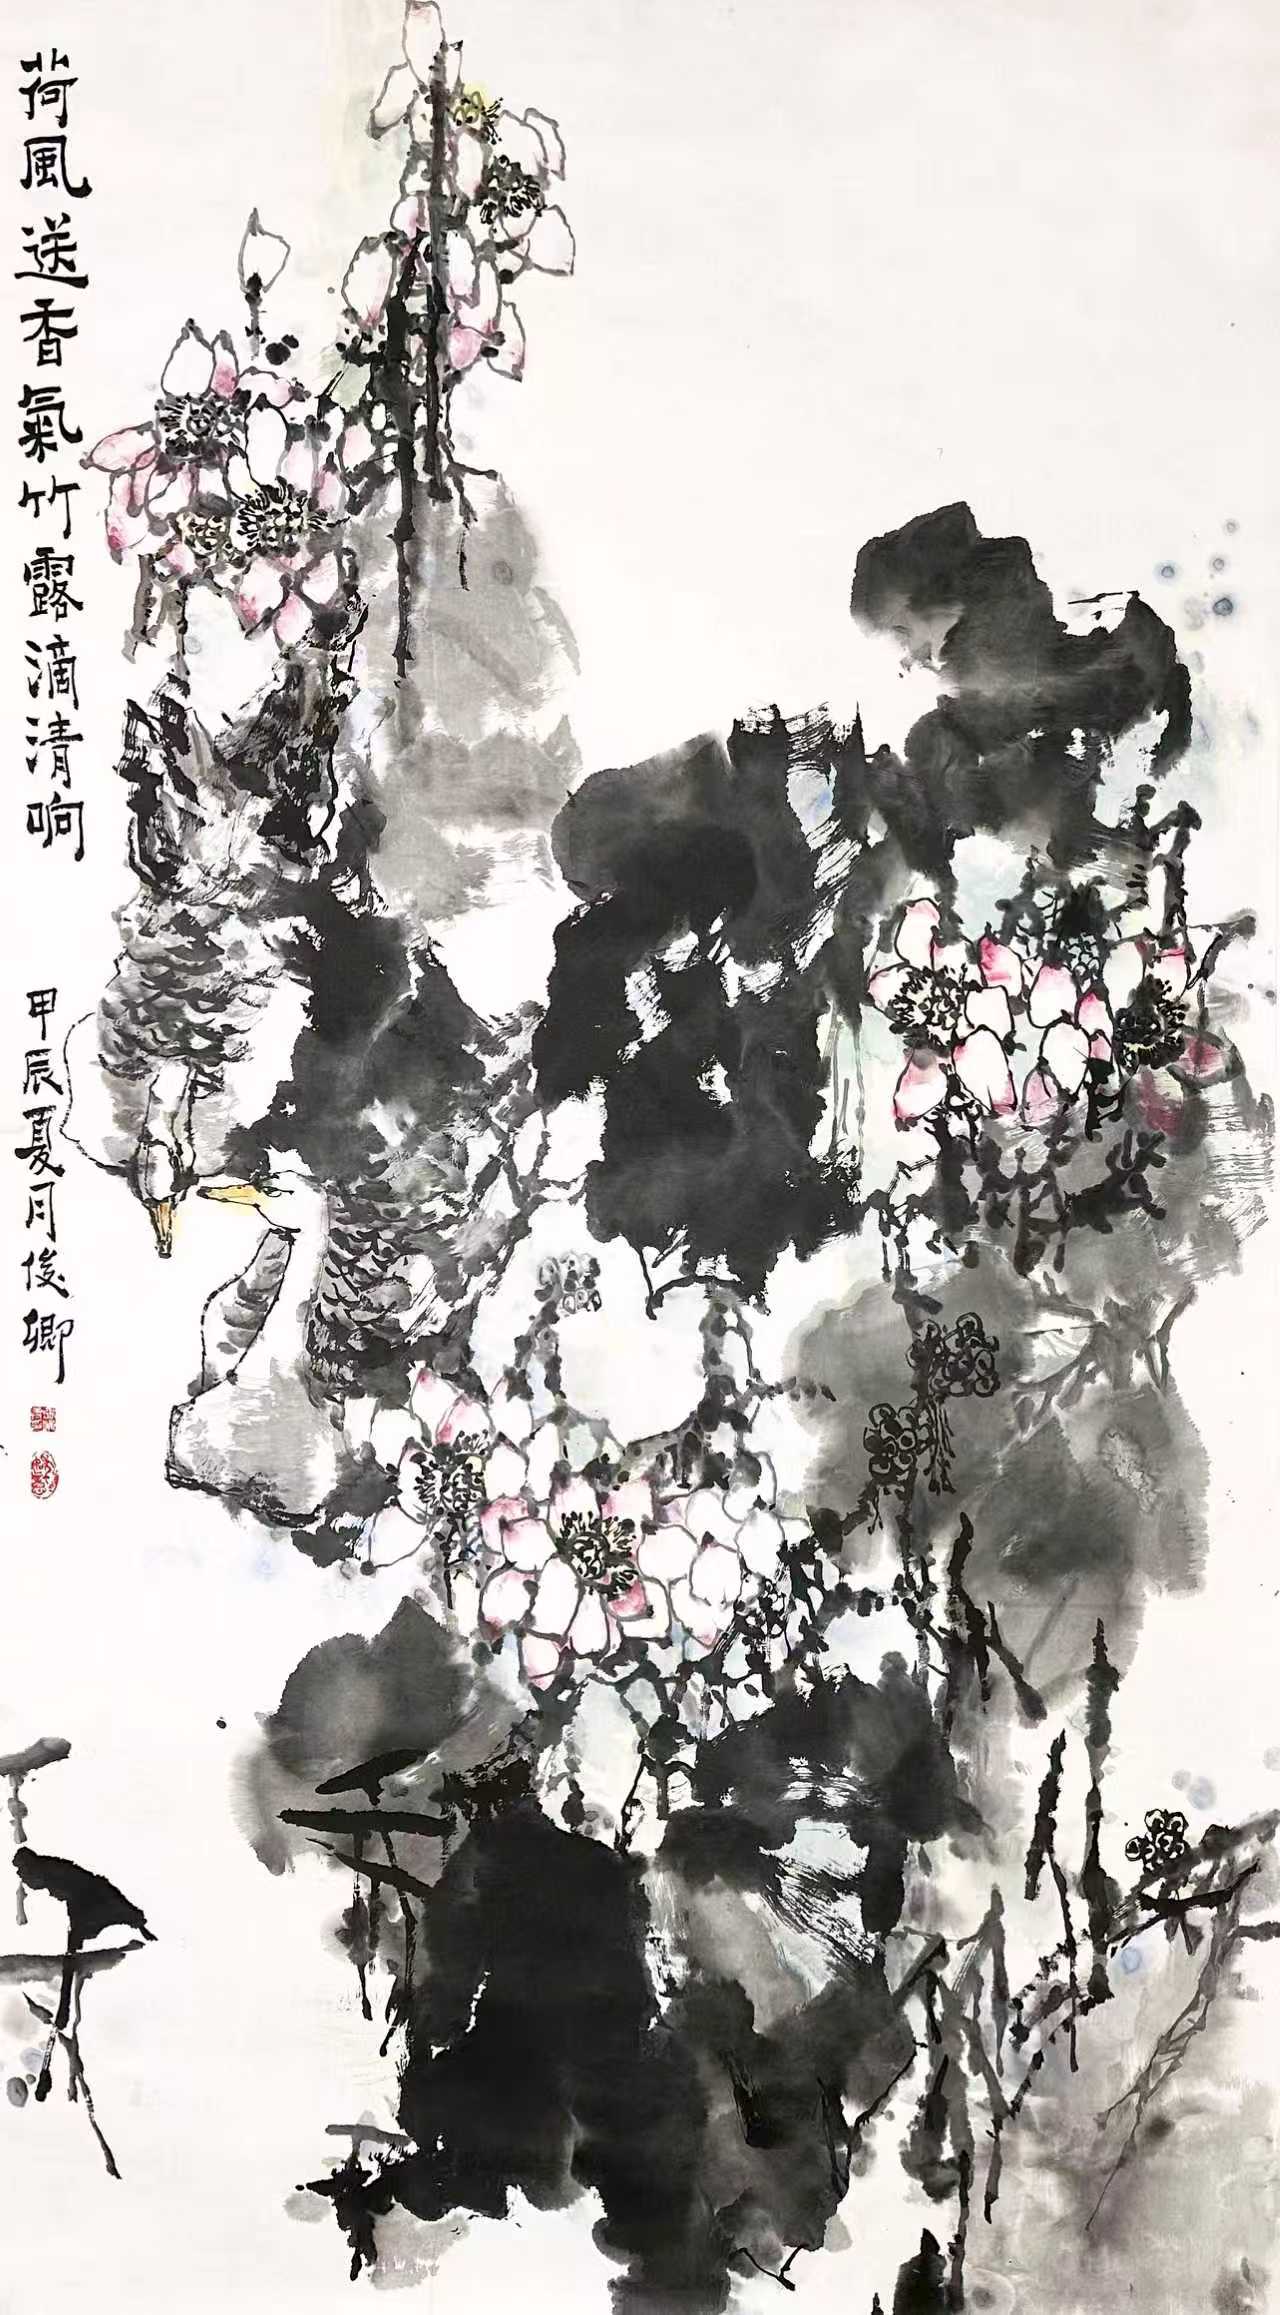 荷風送香氣竹露滴清响
甲辰夏月俊卿